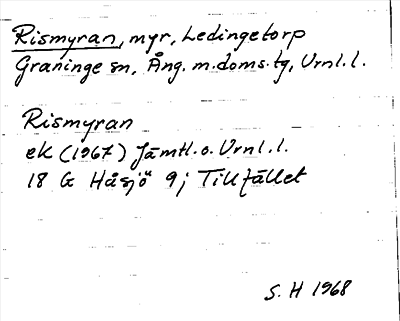 Rismyran, myr, Ledingetorp
Graninge sn, Ång. m.doms.tg, Vrnl.l.
Rismyran
ek (1967) Jämtl.o. Vrnl.l.
18 G Håsjö 9j Tillfället
S. H 1968